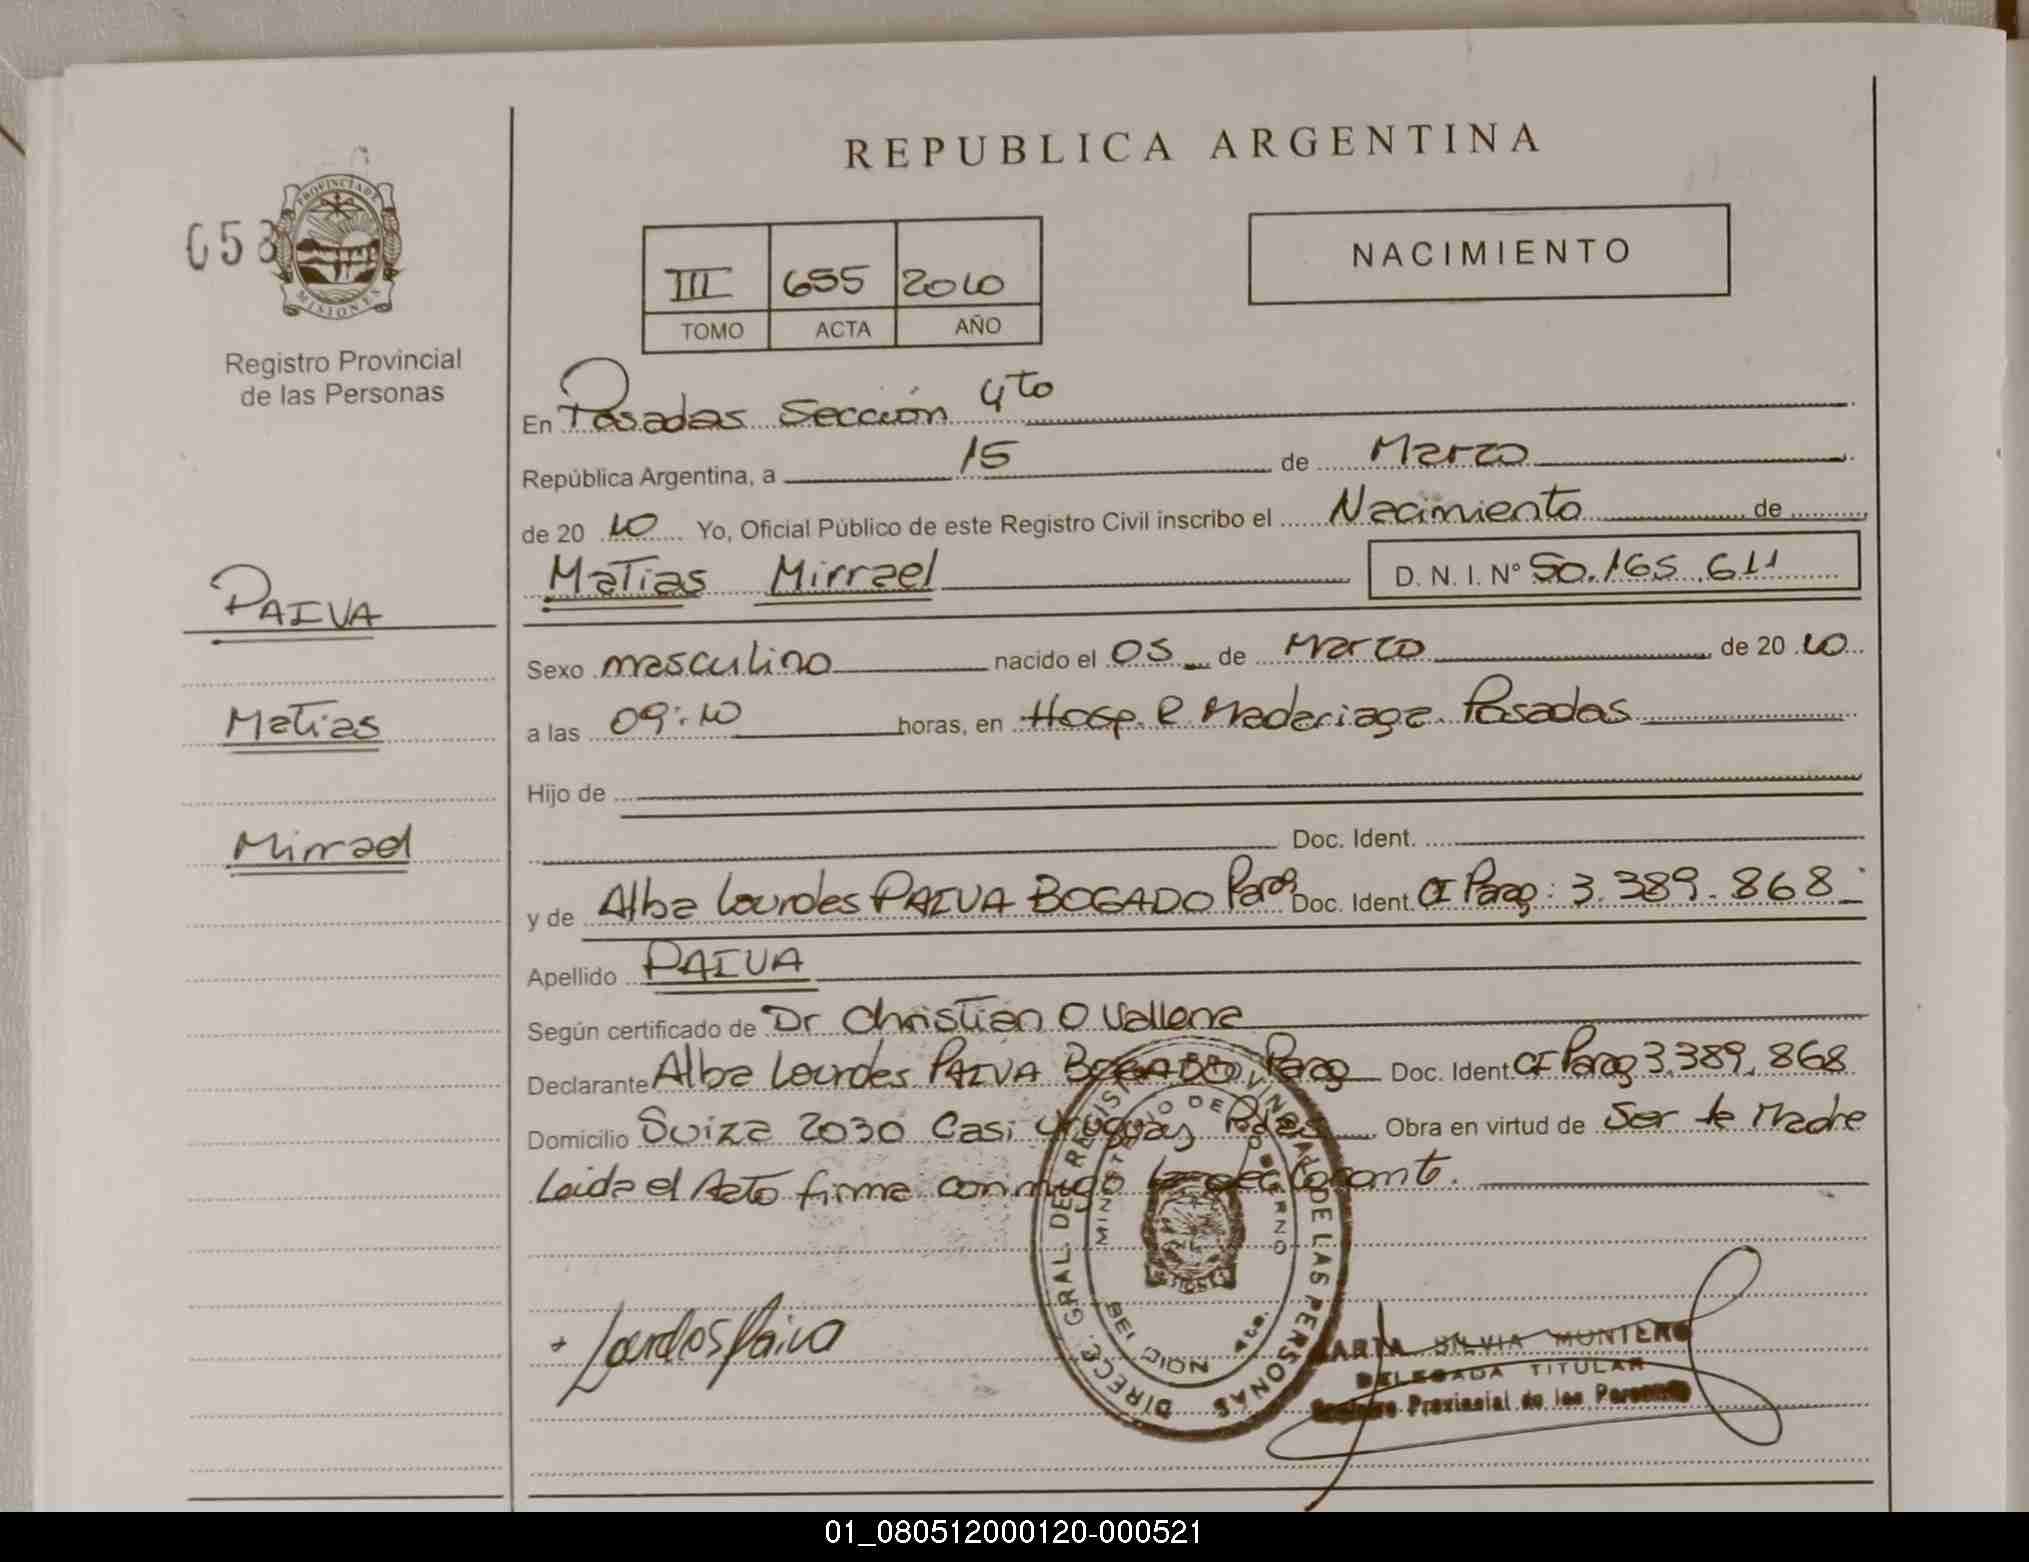 REPUBLICA ARGENTINA
058
PROVINCIA DE MISIONES
Registro Provincial
de las Personas
III 655 2010
TOMO ACTA AÑO
NACIMIENTO
En Posadas Sección 4to
República Argentina, a 15 de Marzo
de 2010 Yo, Oficial Público de este Registro Civil inscribo el Nacimiento de
Matias Mirrael D. N. I. Nº 50.165.611
PAIVA
Matias
Mirrael
Sexo masculino nacido el 05 de Marzo de 2010
a las 09:10 horas, en Hosp. R Madariaga. Posadas
Hijo de
Doc. Ident.
y de Alba Lourdes PAIVA BOGADO Parag Doc. Ident. CI Parag: 3.389.868
Apellido PAIVA
Según certificado de Dr Christian O Vallena
Declarante Alba Lourdes PAIVA BOGADO Parag Doc. Ident. CI Parag 3.389.868
Domicilio Suiza 2030 Casi Uruguay Pdas Obra en virtud de Ser la Madre
Leida el Acta firma conmigo la declarante.
DIRECC. GRAL. DEL REGISTRO PROVINCIAL DE LAS PERSONAS
MINISTERIO DE GOBIERNO
Lourdes Paiva
MARTA SILVIA MONTERO
DELEGADA TITULAR
Registro Provincial de las Personas
01_080512000120-000521